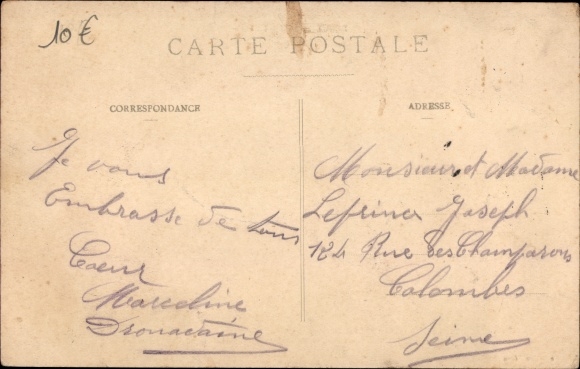 10€
CARTE POSTALE
CORRESPONDANCE
Je vous
Embrasse de tous
Coeur
Marceline
ADRESSE
Monsieur et Madame
Lefrincs Joseph
124 Rue des Champarons
Colombes
Seine